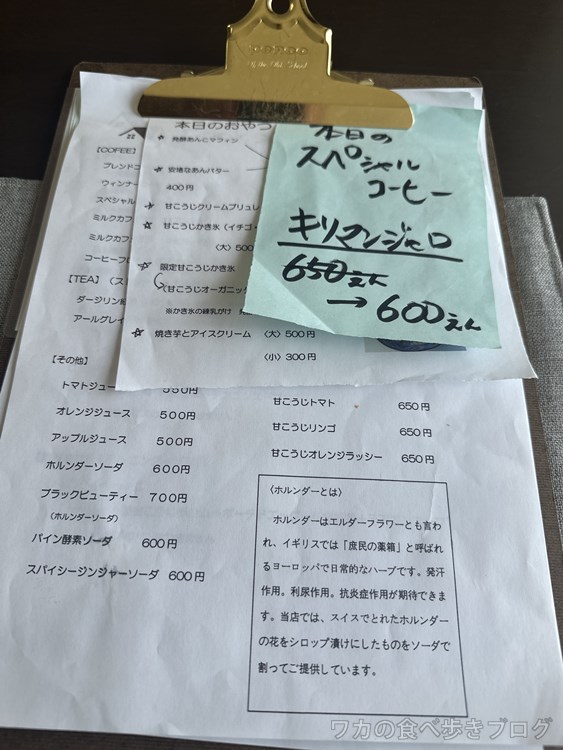 本日の
スペシャル
コーヒー
キリマンジャロ
650えん
→ 600えん
本日のおやつ
☆ 発酵あんこマフィン
☆ 安塊なあんバター
400円
☆ 甘こうじクリームブリュレ
☆ 甘こうじかき氷(イチゴ・
(大) 500
☆ 限定甘こうじかき氷
(甘こうじオーガニッ
※かき氷の練乳がけ
☆ 焼き芋とアイスクリーム (大) 500円
(小) 300円
【COFEE】
ブレンドコ
ウィンナー
スペシャル
ミルクカフ
ミルクカフ
コーヒーフ
【TEA】(ス
ダージリン紅
アールグレイ
【その他】
トマトジュー 550円
オレンジジュース 500円
アップルジュース 500円
ホルンダーソーダ 600円
ブラックビューティー 700円
(ホルンダーソーダ)
パイン酵素ソーダ 600円
スパイシージンジャーソーダ 600円
甘こうじトマト 650円
甘こうじリンゴ 650円
甘こうじオレンジラッシー 650円
〈ホルンダーとは〉
ホルンダーはエルダーフラワーとも言わ
れ、イギリスでは「庶民の薬箱」と呼ばれ
るヨーロッパで日常的なハーブです。発汗
作用。利尿作用。抗炎症作用が期待できま
す。当店では、スイスでとれたホルンダー
の花をシロップ漬けにしたものをソーダで
割ってご提供しています。
ワカの食べ歩きブログ